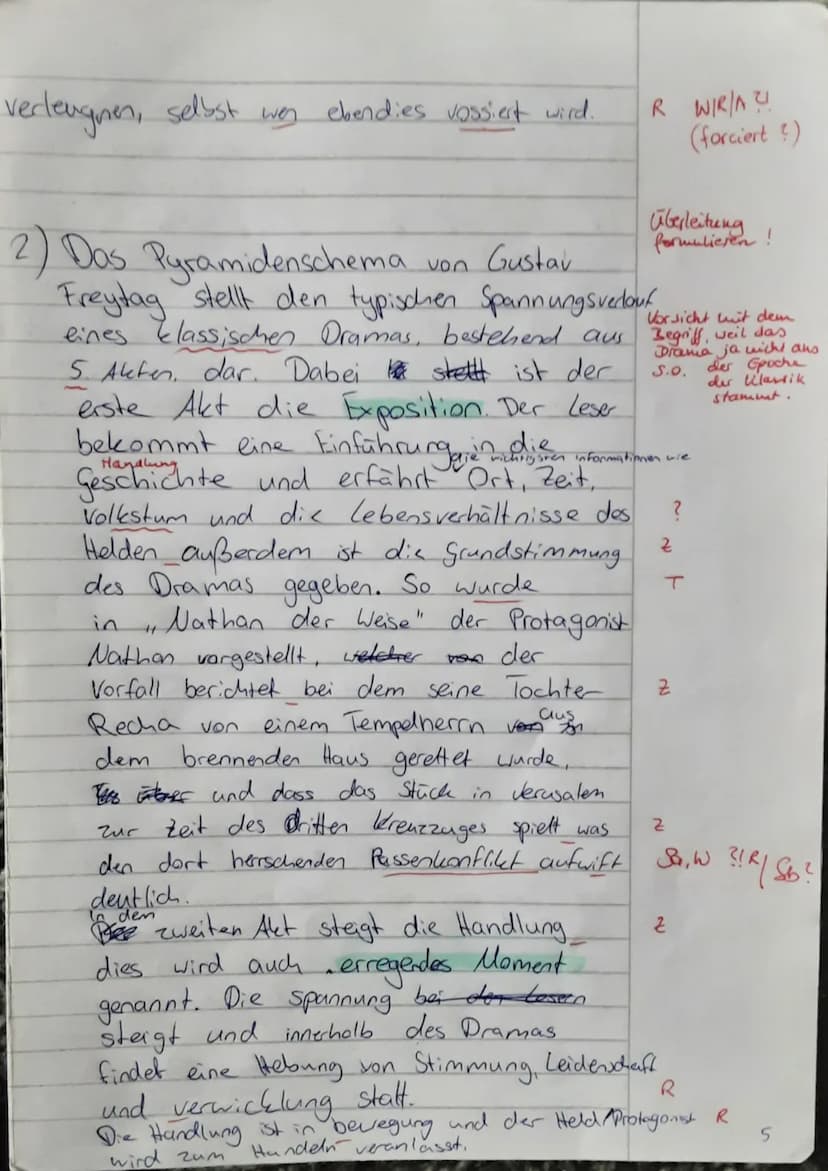 verleugnen, selbst wen ebendies vossiert wird.
R W/R/A ?!
(forciert ?)
Überleitung
formulieren !
2) Das Pyramidenschema von Gustav
Freytag stellt den typischen Spannungsverlauf
eines klassischen Dramas, bestehend aus
Vorsicht mit dem
Begriff, weil das
Drama ja nicht aus
s.o. der Epoche
der Klassik
stammt.
5 Akten, dar. Dabei stellt ist der
erste Akt die Exposition. Der Leser
bekommt eine Einführung in die
Handlung
die wichtigsten Informationen wie
Geschichte und erfährt Ort, Zeit,
Volkstum und die Lebensverhältnisse des ?
Helden außerdem ist die Grundstimmung Z
des Dramas gegeben. So wurde T
in „Nathan der Weise" der Protagonist
Nathan vorgestellt, welcher von der
Vorfall berichtet bei dem seine Tochter Z
Recha von einem Tempelherrn von aus
dem brennenden Haus gerettet wurde,
über und dass das Stück in Jerusalem
zur Zeit des dritten Kreuzzuges spielt was Z
den dort herrschenden Rassenkonflikt aufwift Sa, W ?! R/ Sb?
deutlich.
In den
zweiten Akt steigt die Handlung Z
dies wird auch erregendes Moment
genannt. Die Spannung bei den Lesern
steigt und innerhalb des Dramas
findet eine Hebung von Stimmung, Leidenschaft
und verwicklung statt. R
Die Handlung ist in bewegung und der Held/Protagonist R
wird zum Handeln veranlasst.
5